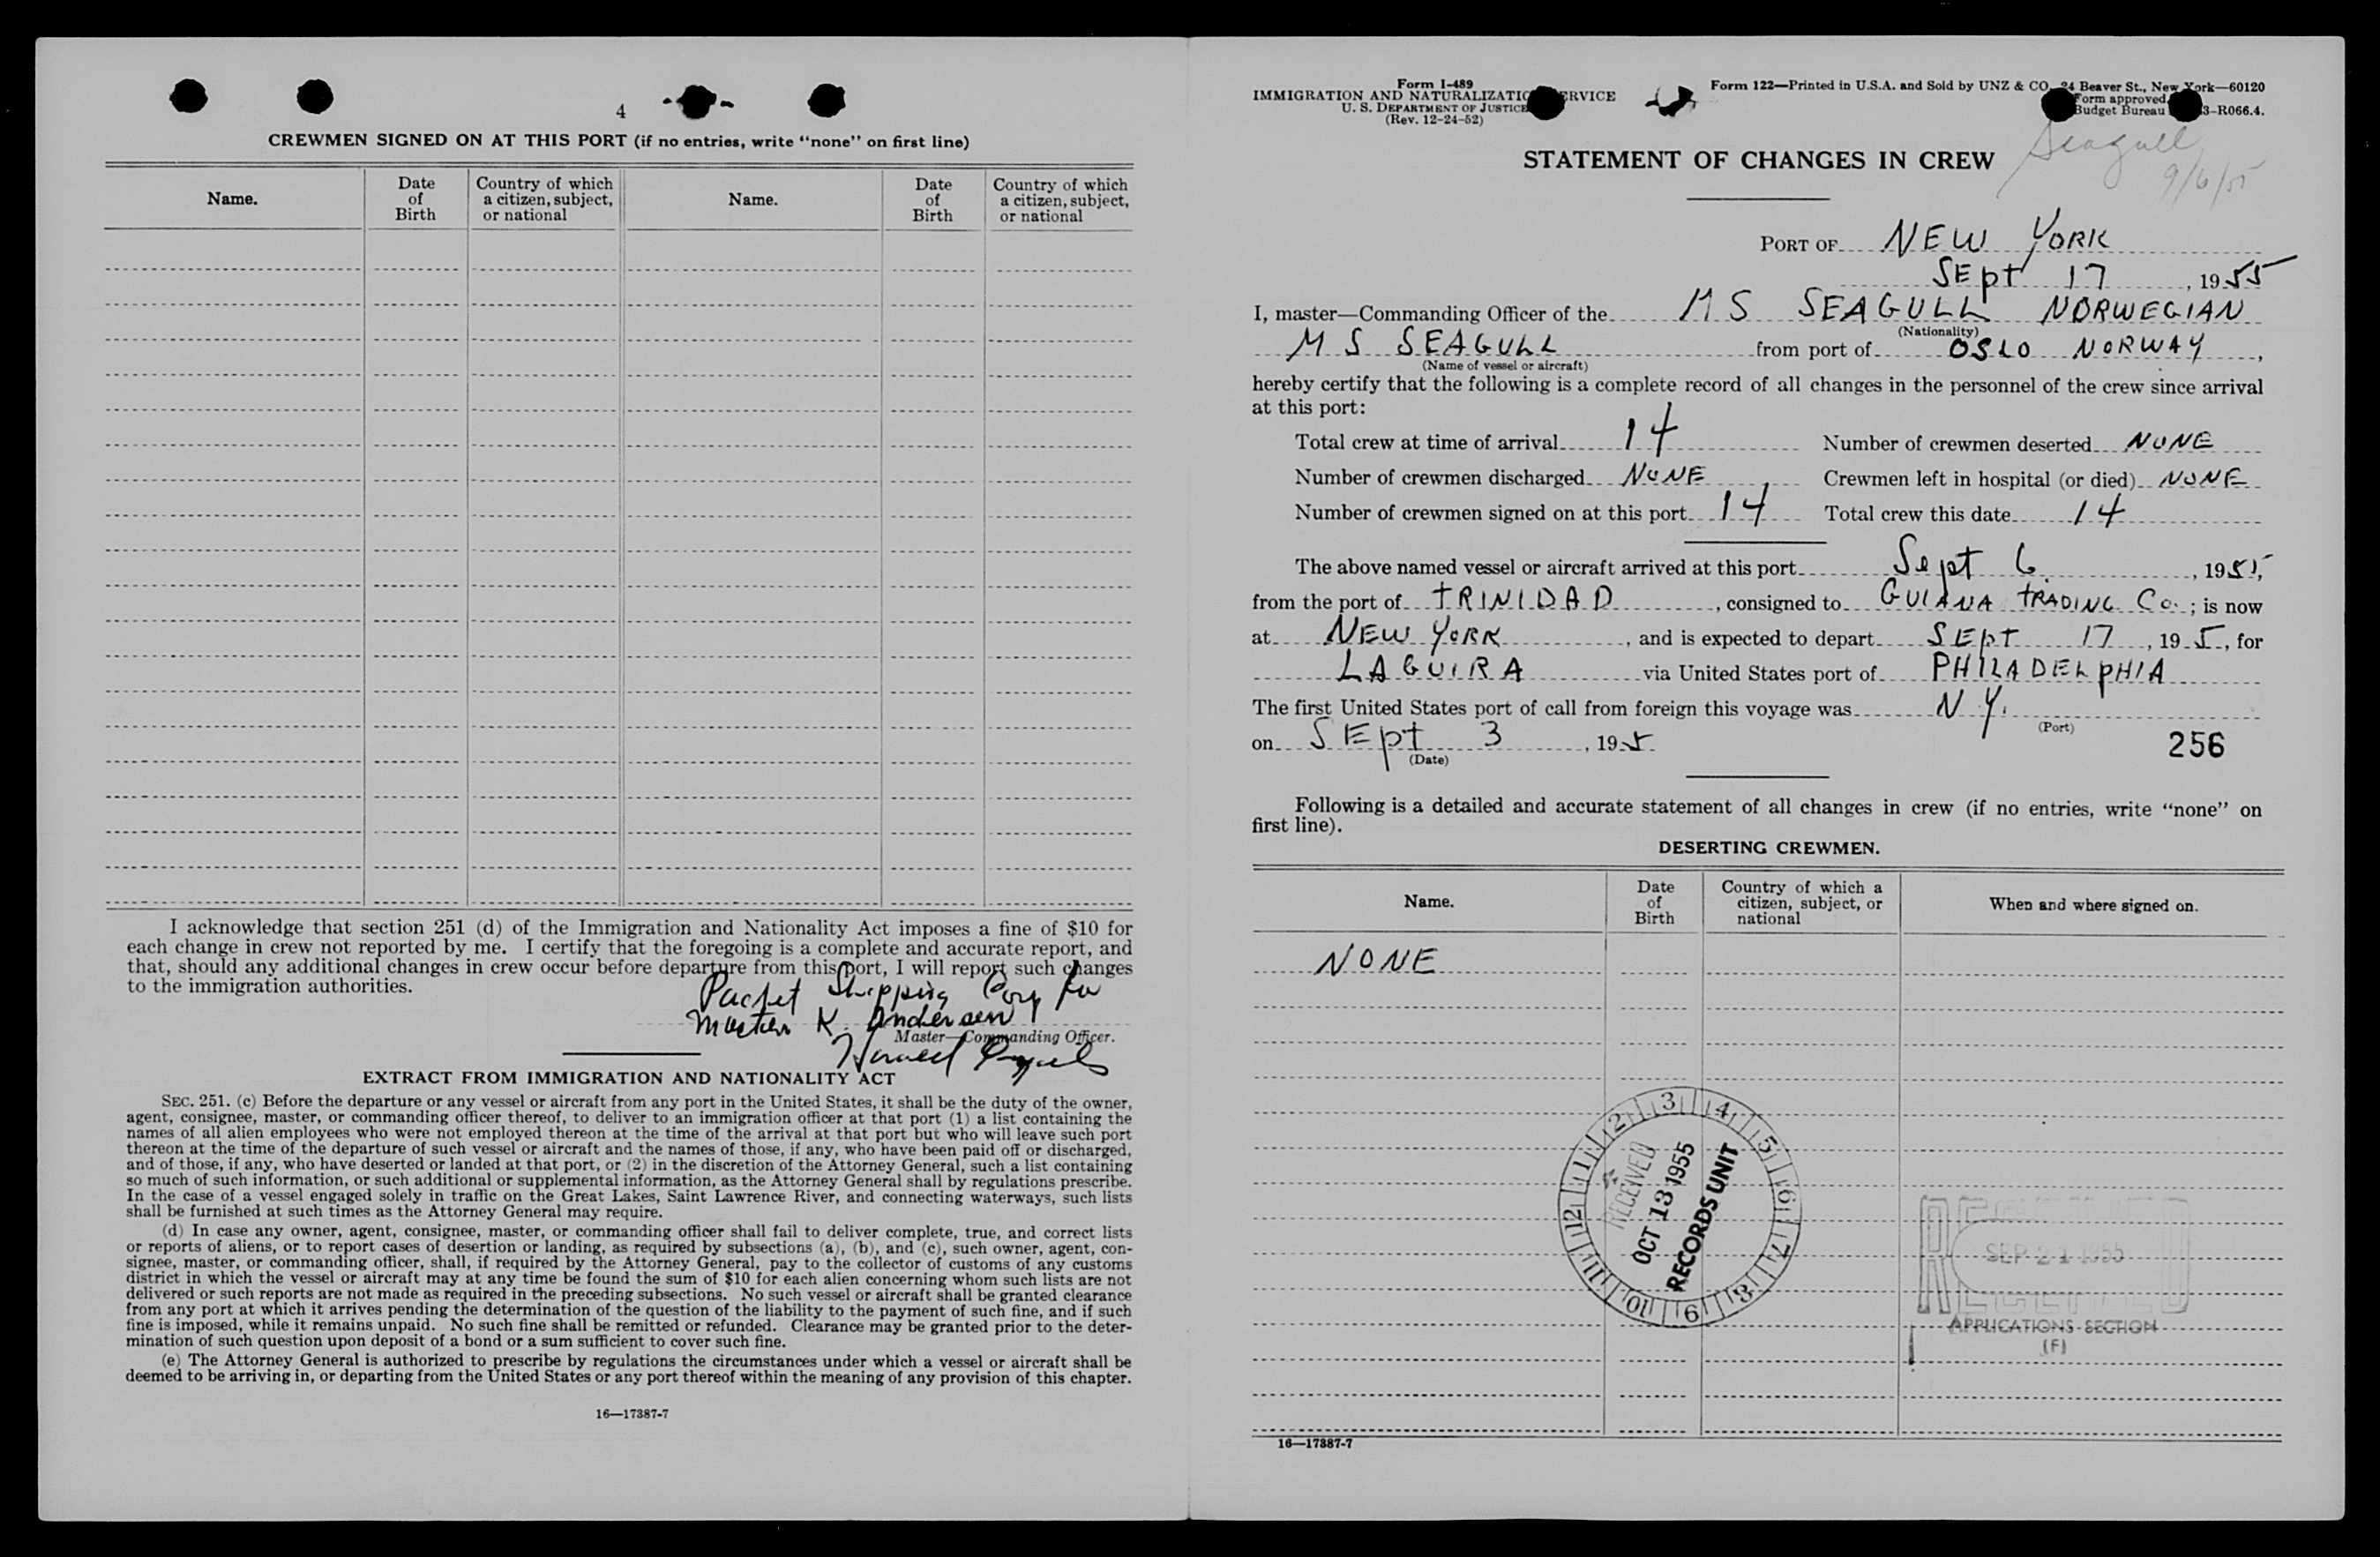 4
CREWMEN SIGNED ON AT THIS PORT (if no entries, write "none" on first line)
Name. Date of Birth Country of which a citizen, subject, or national Name. Date of Birth Country of which a citizen, subject, or national
I acknowledge that section 251 (d) of the Immigration and Nationality Act imposes a fine of $10 for
each change in crew not reported by me. I certify that the foregoing is a complete and accurate report, and
that, should any additional changes in crew occur before departure from this port, I will report such changes
to the immigration authorities.
Packet Shipping Corp for
Master K. Andersen
Master—Commanding Officer.
EXTRACT FROM IMMIGRATION AND NATIONALITY ACT
SEC. 251. (c) Before the departure or any vessel or aircraft from any port in the United States, it shall be the duty of the owner,
agent, consignee, master, or commanding officer thereof, to deliver to an immigration officer at that port (1) a list containing the
names of all alien employees who were not employed thereon at the time of the arrival at that port but who will leave such port
thereon at the time of the departure of such vessel or aircraft and the names of those, if any, who have been paid off or discharged,
and of those, if any, who have deserted or landed at that port, or (2) in the discretion of the Attorney General, such a list containing
so much of such information, or such additional or supplemental information, as the Attorney General shall by regulations prescribe.
In the case of a vessel engaged solely in traffic on the Great Lakes, Saint Lawrence River, and connecting waterways, such lists
shall be furnished at such times as the Attorney General may require.
(d) In case any owner, agent, consignee, master, or commanding officer shall fail to deliver complete, true, and correct lists
or reports of aliens, or to report cases of desertion or landing, as required by subsections (a), (b), and (c), such owner, agent, con-
signee, master, or commanding officer, shall, if required by the Attorney General, pay to the collector of customs of any customs
district in which the vessel or aircraft may at any time be found the sum of $10 for each alien concerning whom such lists are not
delivered or such reports are not made as required in the preceding subsections. No such vessel or aircraft shall be granted clearance
from any port at which it arrives pending the determination of the question of the liability to the payment of such fine, and if such
fine is imposed, while it remains unpaid. No such fine shall be remitted or refunded. Clearance may be granted prior to the deter-
mination of such question upon deposit of a bond or a sum sufficient to cover such fine.
(e) The Attorney General is authorized to prescribe by regulations the circumstances under which a vessel or aircraft shall be
deemed to be arriving in, or departing from the United States or any port thereof within the meaning of any provision of this chapter.
16—17387-7
Form I-489
IMMIGRATION AND NATURALIZATIO ERVICE
U. S. DEPARTMENT OF JUSTICE
(Rev. 12-24-52)
Form 122—Printed in U.S.A. and Sold by UNZ & CO. 24 Beaver St., New York—60120
Form approved.
Budget Bureau 3-R066.4.
Seagull
9/6/55
STATEMENT OF CHANGES IN CREW
PORT OF NEW YORK
SEpt 17, 1955
I, master—Commanding Officer of the M S SEAGULL NORWEGIAN
(Nationality)
M S SEAGULL from port of OSLO NORWAY,
(Name of vessel or aircraft)
hereby certify that the following is a complete record of all changes in the personnel of the crew since arrival
at this port:
Total crew at time of arrival 14 Number of crewmen deserted NONE
Number of crewmen discharged NONE Crewmen left in hospital (or died) NONE
Number of crewmen signed on at this port 14 Total crew this date 14
The above named vessel or aircraft arrived at this port Sept 6, 1955,
from the port of TRINIDAD, consigned to GUIANA TRADING Co.; is now
at NEW YORK, and is expected to depart SEpt 17, 19 5, for
LAGUIRA via United States port of PHILADELpHIA
The first United States port of call from foreign this voyage was N Y.
(Port)
on SEpt 3, 19 5
(Date)
256
Following is a detailed and accurate statement of all changes in crew (if no entries, write "none" on
first line).
DESERTING CREWMEN.
Name. Date of Birth Country of which a citizen, subject, or national When and where signed on.
NONE
1 2 3 4 5 6 7 8 9 10 11 12
RECEIVED
OCT 13 1955
RECORDS UNIT
RECEIVED
SEP 21 1955
APPLICATIONS SECTION
(F)
16—17387-7